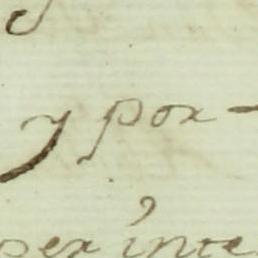 y por
per inte